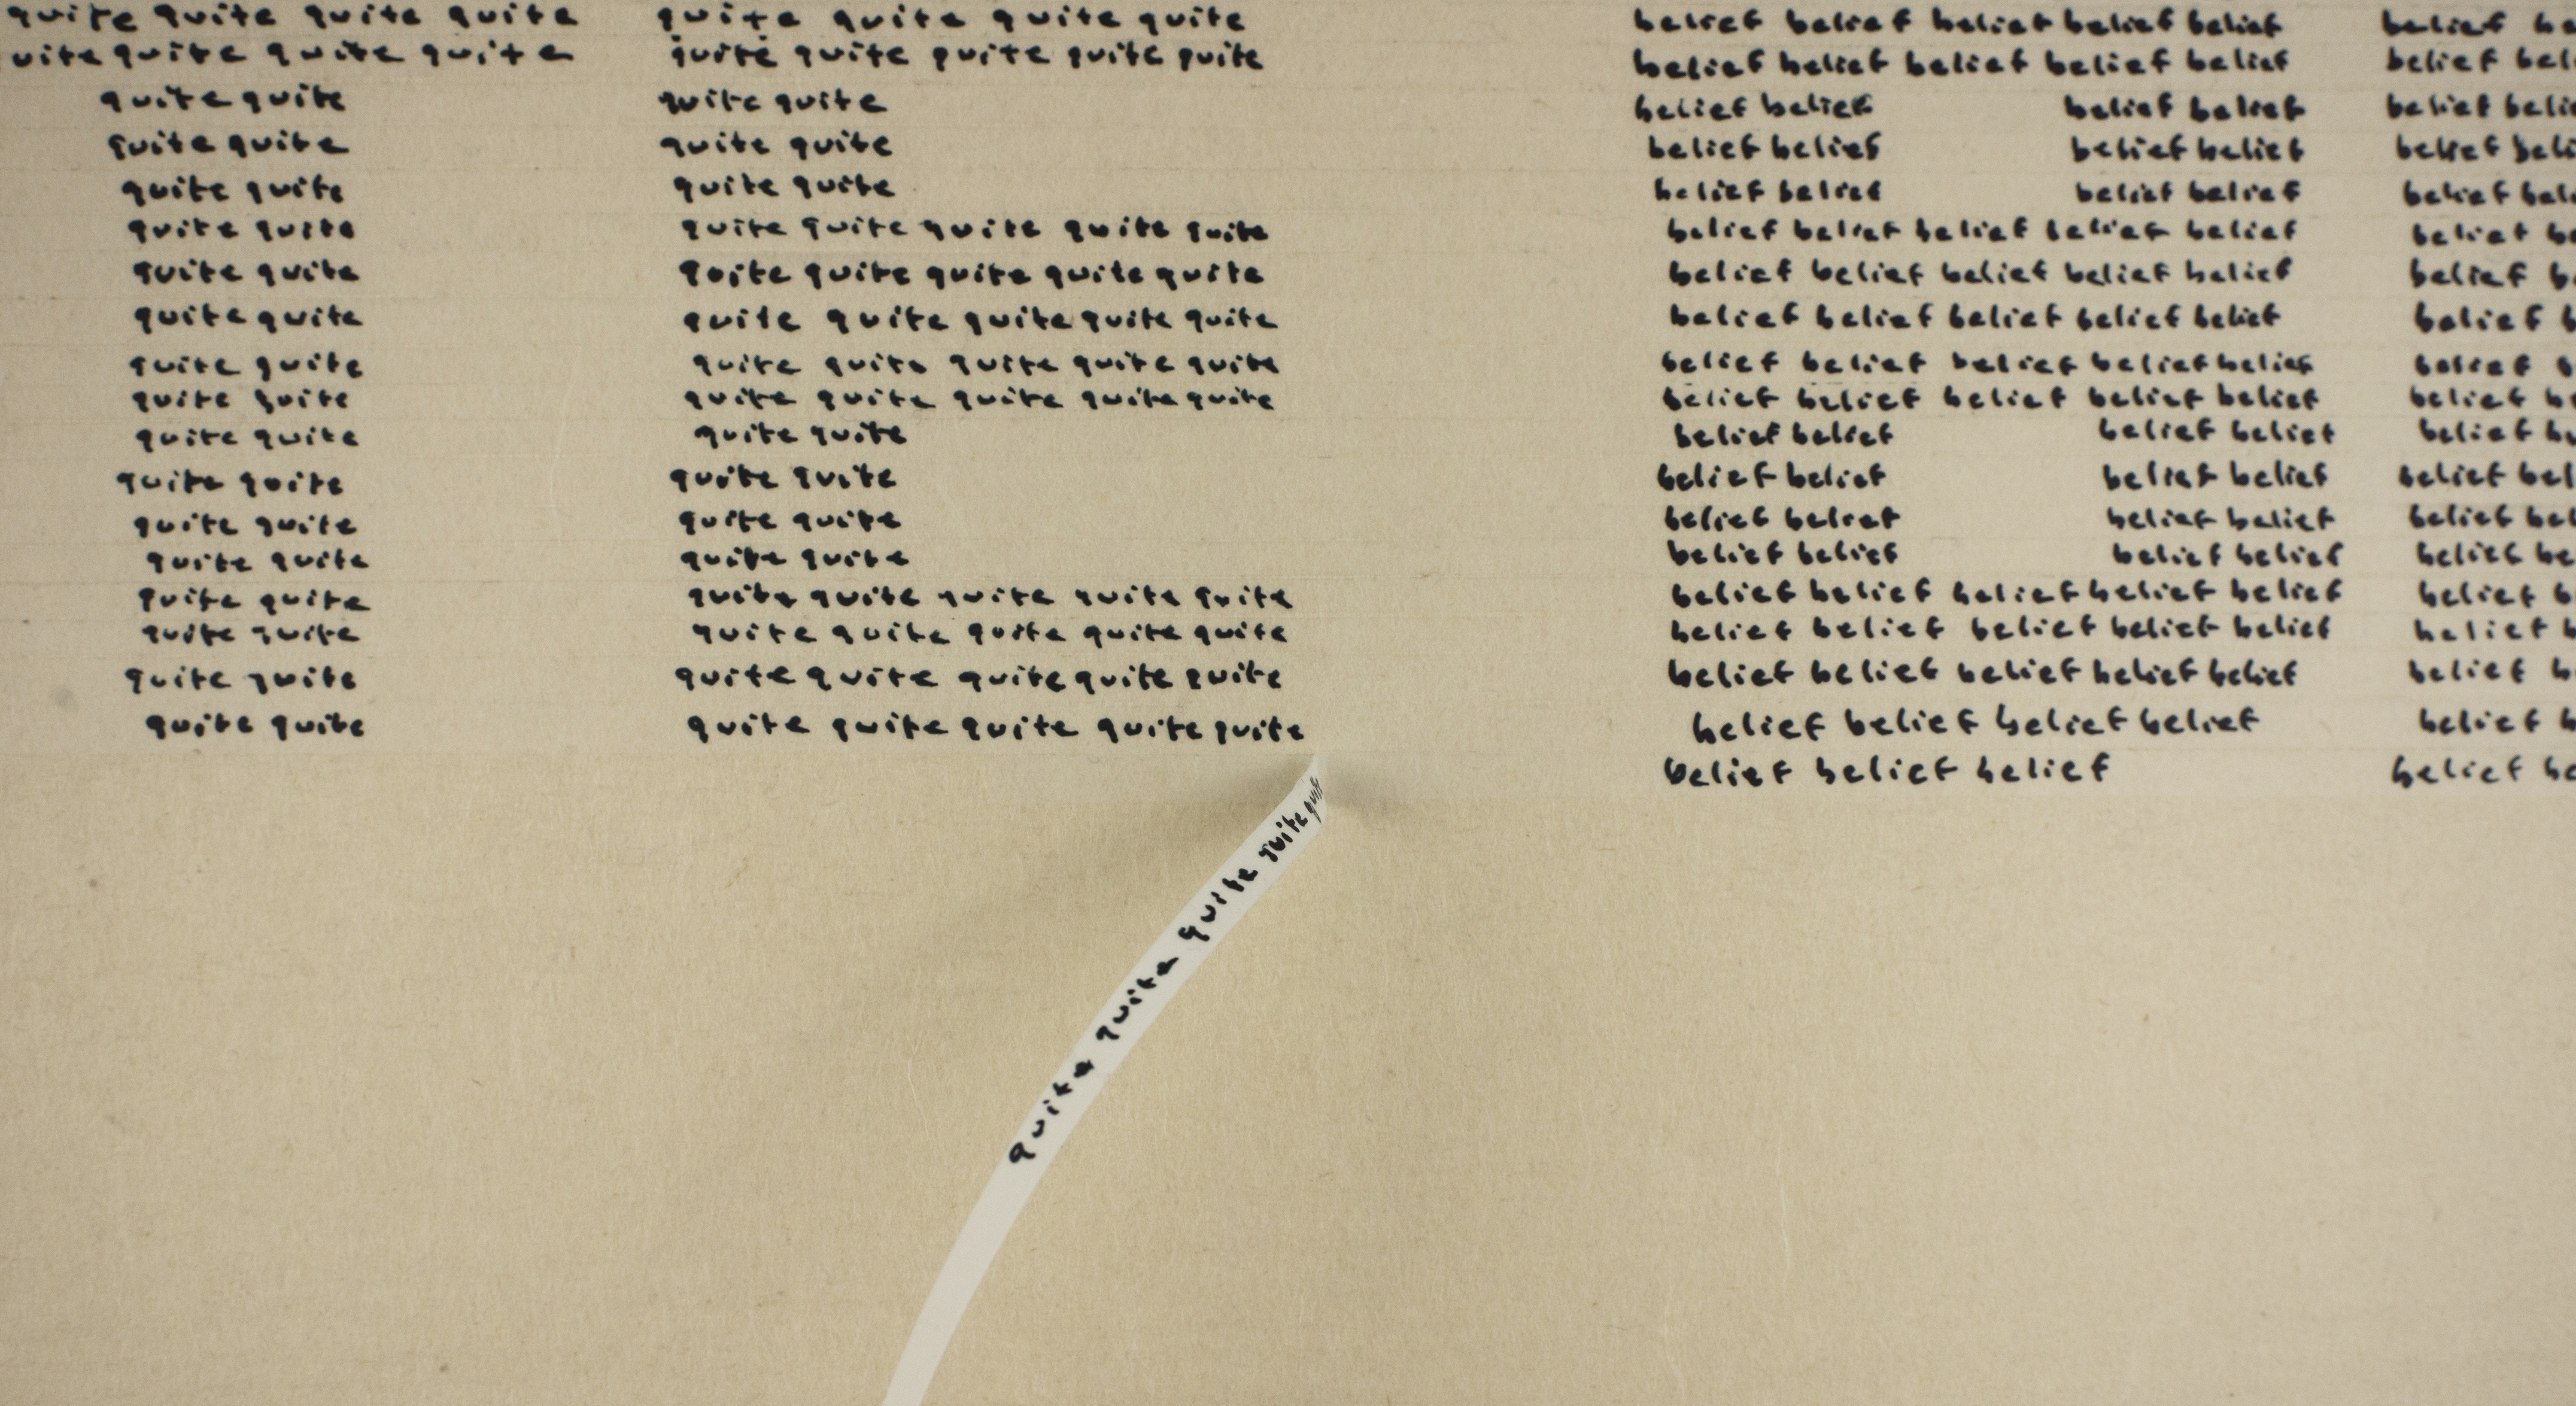 quite quite quite quite quite quite quite quite belief belief belief belief belief belief
uite quite quite quite quite quite quite quite quite belief belief belief belief belief belief
quite quite quite quite belief belief belief belief belief
quite quite quite quite belief belief belief belief belief
quite quite quite quite belief belief belief belief belief
quite quite quite quite quite quite quite belief belief belief belief belief belief
quite quite quite quite quite quite quite belief belief belief belief belief belief
quite quite quite quite quite quite quite belief belief belief belief belief belief
quite quite quite quite quite quite quite belief belief belief belief belief belief
quite quite quite quite quite quite quite belief belief belief belief belief belief
quite quite quite quite belief belief belief belief belief
quite quite quite quite belief belief belief belief belief
quite quite quite quite belief belief belief belief belief
quite quite quite quite belief belief belief belief belief
quite quite quite quite quite quite quite belief belief belief belief belief belief
quite quite quite quite quite quite quite belief belief belief belief belief belief
quite quite quite quite quite quite quite belief belief belief belief belief belief
quite quite quite quite quite quite quite belief belief belief belief belief
belief belief belief belief
quite quite quite quite